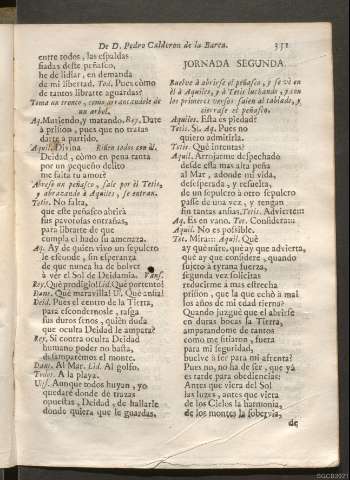 De D. Pedro Calderon de la Barca.
351
entre todos, las espaldas
fiadas deste peñasco,
he de lidiar, en demanda
de mi libertad. Tod. Pues còmo
de tantos librarte aguardas?
Toma un tronco, como arrancandole de
un arbol.
Aq. Muriendo, y matando. Rey. Date
à prision, pues que no tratas
darte à partido.
Aquil. Divina Riñen todos con èl.
Deidad, còmo en pena tanta
por un pequeño delito
me falta tu amor?
Abrese un peñasco, sale por èl Tetis,
y abrazando à Aquiles, se entran.
Tetis. No falta,
que este peñasco abrirà
sus pavorosas entrañas,
para librarte de que
cumpla el hado su amenaza.
Aq. Ay de quien vivo un sepulcro
le esconde, sin esperanza
de que nunca ha de bolver
à vèr el Sol de Deidamia. Vans.
Rey. Què prodigio! Lid. Què portento!
Dant. Què maravilla! Ul. Què ansia!
Deid. Pues el centro de la Tierra,
para escondernosle, rasga
sus duros senos, quièn duda
que oculta Deidad le ampara?
Rey. Si contra oculta Deidad
humano poder no basta,
desamparèmos el monte.
Dant. Al Mar. Lid. Al golfo.
Todos. A la playa.
Ulis. Aunque todos huyan, yo
quedarè donde dè trazas
opuestas, Deidad, de hallarle
donde quiera que le guardas.
JORNADA SEGUNDA.
Buelve à abrirse el peñasco, y se vè en
èl à Aquiles, y à Tetis luchando, y con
los primeros versos salen al tablado, y
cierrase.
Aquiles. Esta es piedad?
Tetis. Si. Aq. Pues no
quiero admitirla.
Tetis. Què intentas?
Aquil. Arrojarme despechado
desde essa mas alta peña
al Mar, adonde mi vida,
desesperada, y resuelta,
de un sepulcro à otro sepulcro
passe de una vez, y tengan
fin tantas ansias. Tetis. Advierte...
Aq. Es en vano. Tet. Considera...
Aquil. No es possible.
Tet. Mira... Aquil. Què
ay que mire, què ay que advierta,
què ay que considere, quando
sujeto à tyrana fuerza,
segunda vez solicitas
reducirme à mas estrecha
prision, que la que echò à mal
los años de mi edad tierna?
Quando juzguè que el abrirse
en duras bocas la Tierra,
amparandome de tantos
como me sitiaron, fuera
para mi seguridad,
buelve à ser para mi afrenta?
Pues no, no ha de ser, que yà
es tarde para obediencias:
Antes que viera del Sol
las luzes, antes que viera
de los Cielos la harmonia,
de los montes la sobervia,
de
SGCB3021